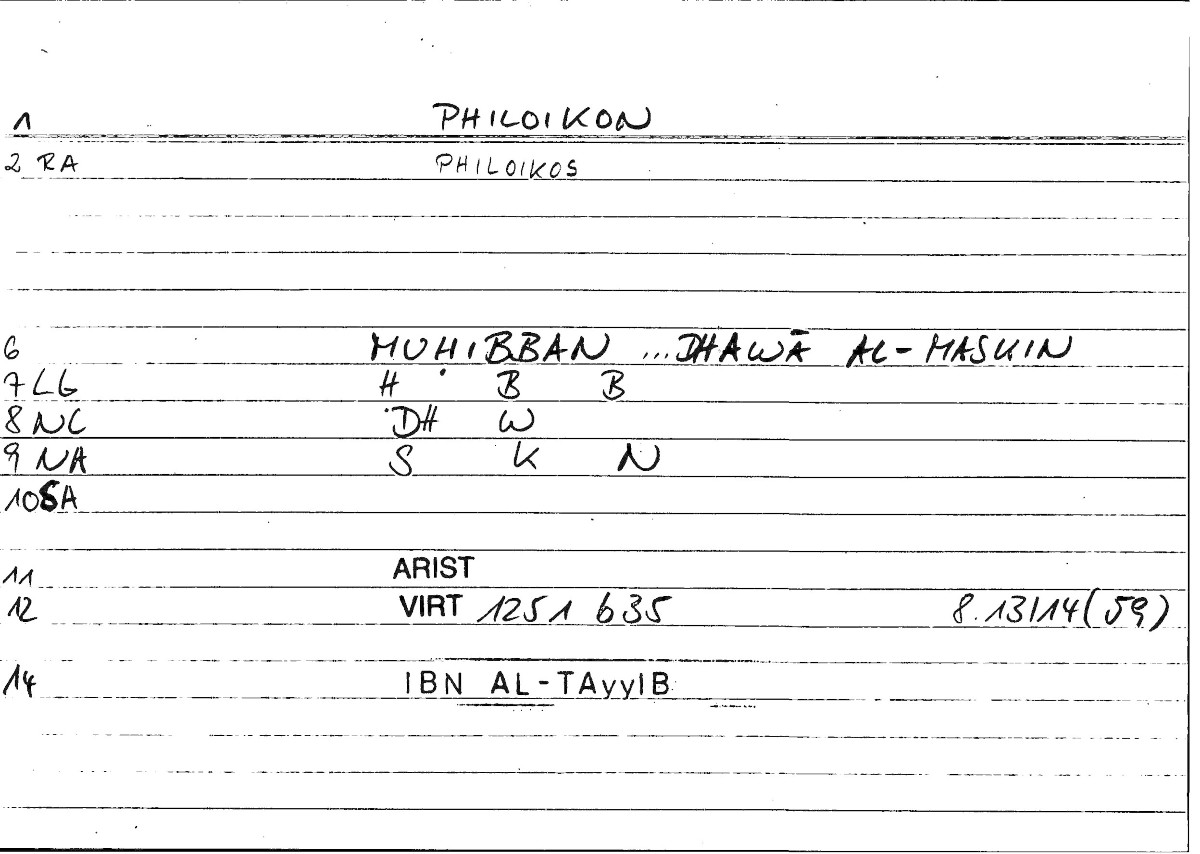 1 PHILOIKON
2 RA PHILOIKOS
6 MUHIBBAN ... DHAWĀ AL-MASKIN
7 LG Ḥ B B
8 NC DH W
9 NA S K N
10 SA
11 ARIST
12 VIRT 1251 b35 8.13/14(59)
14 IBN AL-TAyyIB